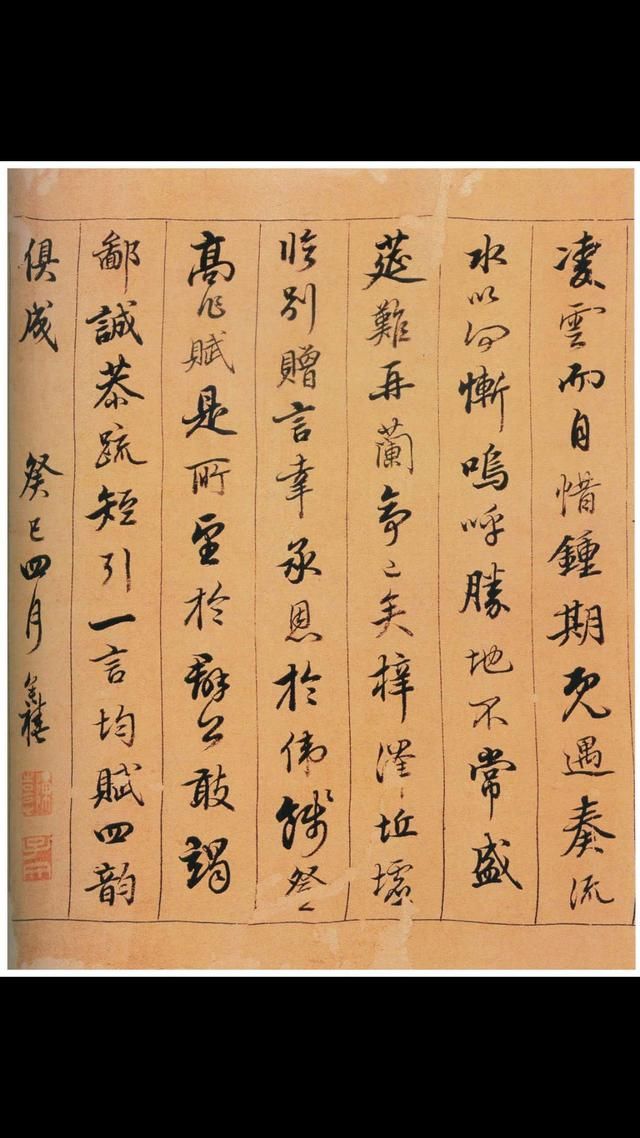 凌雲而自惜鍾期既遇奏流
水以何慚嗚呼勝地不常盛
莚難再蘭亭已矣梓澤坵墟
臨別贈言幸承恩於偉餞登
高作賦是所望於群公敢竭
鄙誠恭疏短引一言均賦四韵
俱成 癸巳四月